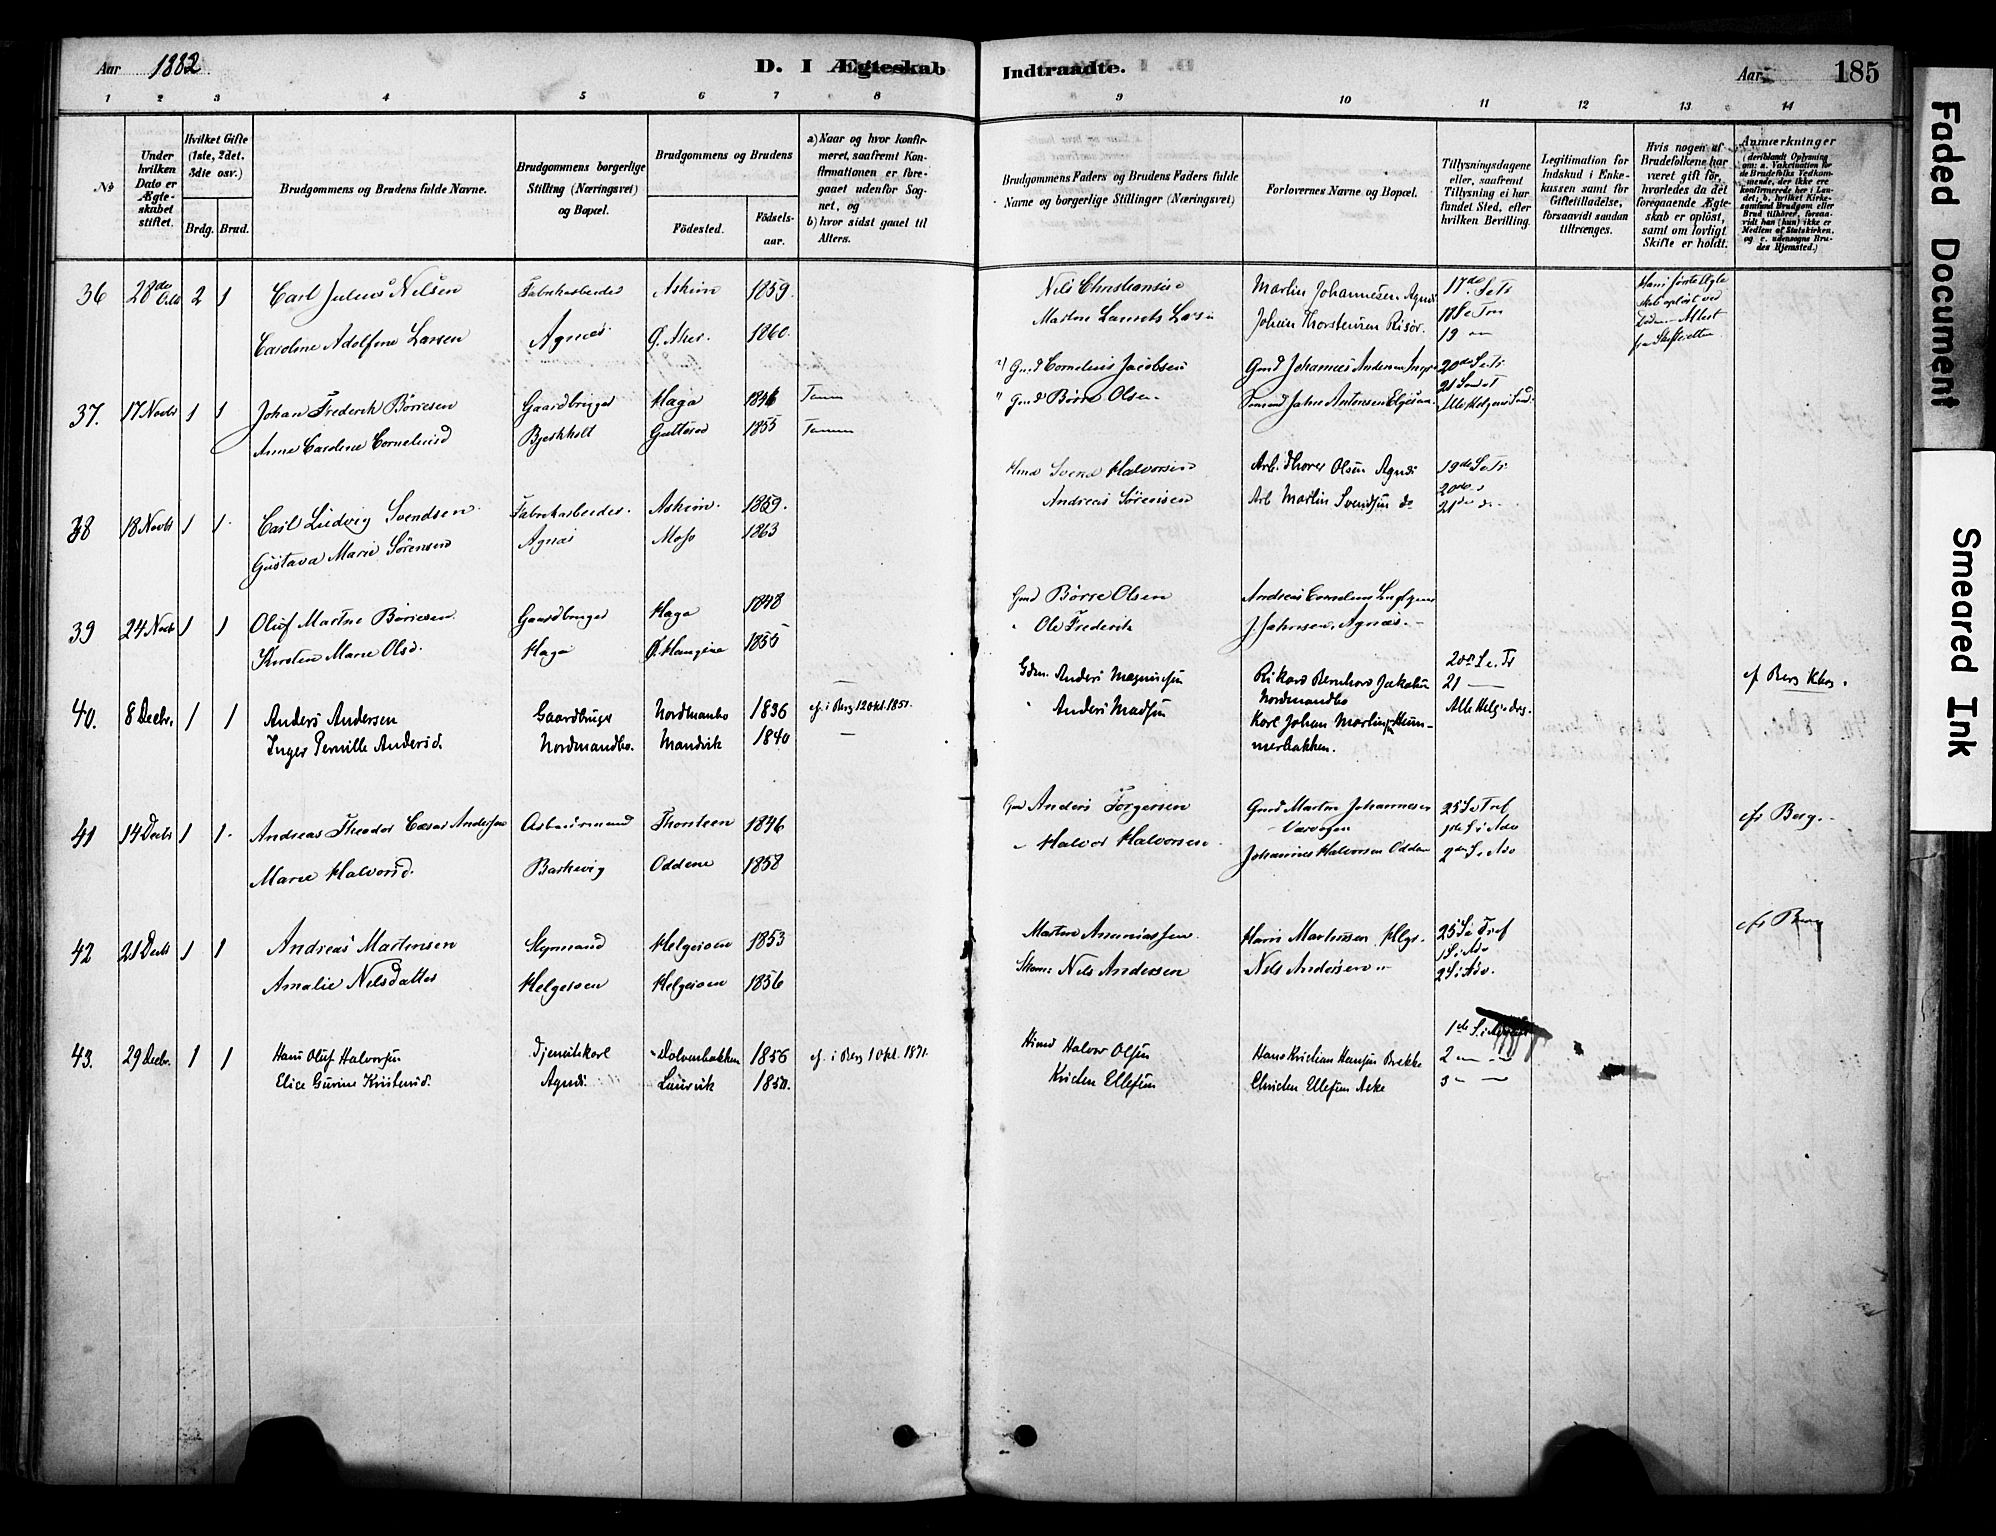 Aar 1882
D. I Ægteskab Indtraadte.
Aar 185
1 2 3 4 5 6 7 8 9 10 11 12 13 14
No
Under hvilken Dato er Ægteskabet stiftet.
Hvilket Gifte (1ste, 2det, 3die osv.)
Brdg. Brud.
Brudgommens og Brudens fulde Navne.
Brudgommens borgerlige Stilling (Næringsvei) og Bopæl.
Brudgommens og Brudens
Födested. Födsels-aar.
a) Naar og hvor konfirmeret, saafremt Konfirmationen er foregaaet udenfor Sognet, og
b) hvor sidst gaaet til Alters.
Brudgommens Faders og Brudens Faders fulde Navne og borgerlige Stillinger (Næringsvei)
Forlovernes Navne og Bopæl.
Tillysningsdagene eller, saafremt Tillysning ei har fundet Sted, efter hvilken Bevilling.
Legitimation for Indskud i Enkekassen samt for Giftetilladelse, forsaavidt saadan tiltrænges.
Hvis nogen af Brudefolkene har været gift før, hvorledes da det foregaaende Ægteskab er oplöst, samt om lovligt Skifte er holdt.
Anmærkninger
(deriblandt Oplysning om: a. Vakcination for de Brudefolks Vedkommende, der ikke ere konfirmerede her i Landet; b. hvilket Kirkesamfund Brudgom eller Brud tilhører, forsaavidt han (hun) ikke er Medlem af Statskirken, og c. udensogns Brudes Hjemsted.)
36 28de Octb 2 1 Carl Julius Nilsen Fabrikarbeider Askim 1859. Nils Christiansen Martin Johannesen Agnæs 17de S e Tr Hans første Ægteskab opløst ved
Caroline Adolfine Larsen Agnæs Ø. Aker. 1860. Lars Johan Thorstensen Risör. 18 S e Tr 19
37. 17 Novbr 1 1 Johan Frederik Börresen Gaardbruger Haga 1846 Gmd Cornelius Jacobsen Gmd Johannes Andersen 20de S e Tr 21
Anne Caroline Corneliusd Bjerkholt 1855 Gmd Börre Olsen. Alle Helgens
38 18 Novbr 1 1. Carl Ludvig Svendsen Fabrikarbeider. Askim. 1859. Hmd Svend Halvorsen Arb. Thorer Olsen Agnæs 19de S e Tr
Gustava Marie Sörensen Agnæs Moss 1863 Andreas Sörensen Arb Martin Svendsen do 20de 21de
39 24 Novb 1 1 Oluf Martin Börresen Gaardbruger Haga 1848 Gmd Börre Olsen Andreas Cornelius
Kirsten Marie Olsd. Haga 1855 Ole Frederik J. Jahnsen, Agnæs.
40. 8 Decbr. 1 1 Anders Andersen Gaardbruger Nordmanbo 1836 cf. i Berg 12 Okt. 1851. Gdm. Anders Magnusen Rikard Bernhard Jakobsen Nordmandbo 20de S. e. Tr 21 Alle Helg. Dag. cf Berg Kbog.
Inger Pernille Andersd. Nordmandbo. Mandvik 1840 Anders Madsen Karl Johan Martinsen Hummerbakken.
41 14 Decbr 1 1. Andreas Theodor Cæsar Andersen Arbeidsmand 1846 Gmd Anders Torgersen Gmd Martin Johannesen 25 S e Tref 1ste S i Adv cfr Berg.
Marie Halvorsd. Barkevig Oddene 1858 Halvor Halvorsen Johannes Halvorsen Odden 2den S i Adv
42 21 Decbr 1 1 Andreas Martinsen Styrmand Helgeroen 1853 Martin Hans Martinsen Hlgr. 25 S e Tref 1 S i Adv cfr Berg
Amalie Nilsdatter Helgeroen Helgeroen 1856 Nils Andersen Nils Andersen 2 S i Adv.
43. 29 Decbr. 1 1 Hans Oluf Halvorsen Tjenstekarl Dolvenbakken 1856 cf. i Berg 1 Okt. 1871. Hmd Halvor Olsen Hans Kristian Hansen Brekke 1ste S. i Advent 2
Elice Gurine Kristensd. Agnæs Laurvik 1850. Kristen Ellefsen Christen Ellefsen Aske 3
Faded Document
Smeared Ink